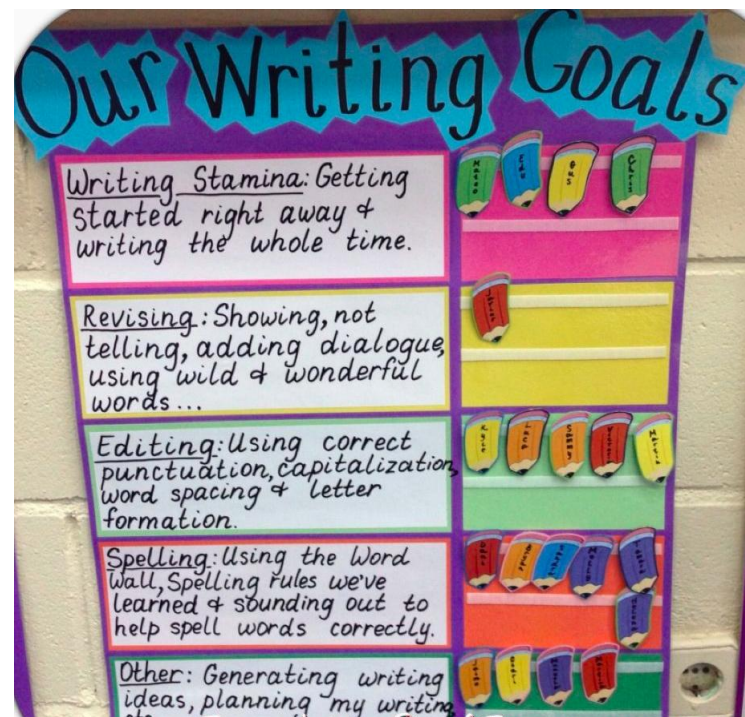 Our Writing Goals
Writing Stamina: Getting
started right away &
writing the whole time.
Edu
Gus
Chris
Revising: Showing, not
telling, adding dialogue,
using wild & wonderful
words...
Editing: Using correct
punctuation, capitalization,
word spacing & letter
formation.
Kyle
Sammy
Spelling: Using the Word
Wall, Spelling rules we've
learned & sounding out to
help spell words correctly.
Other: Generating writing
ideas, planning my writing,